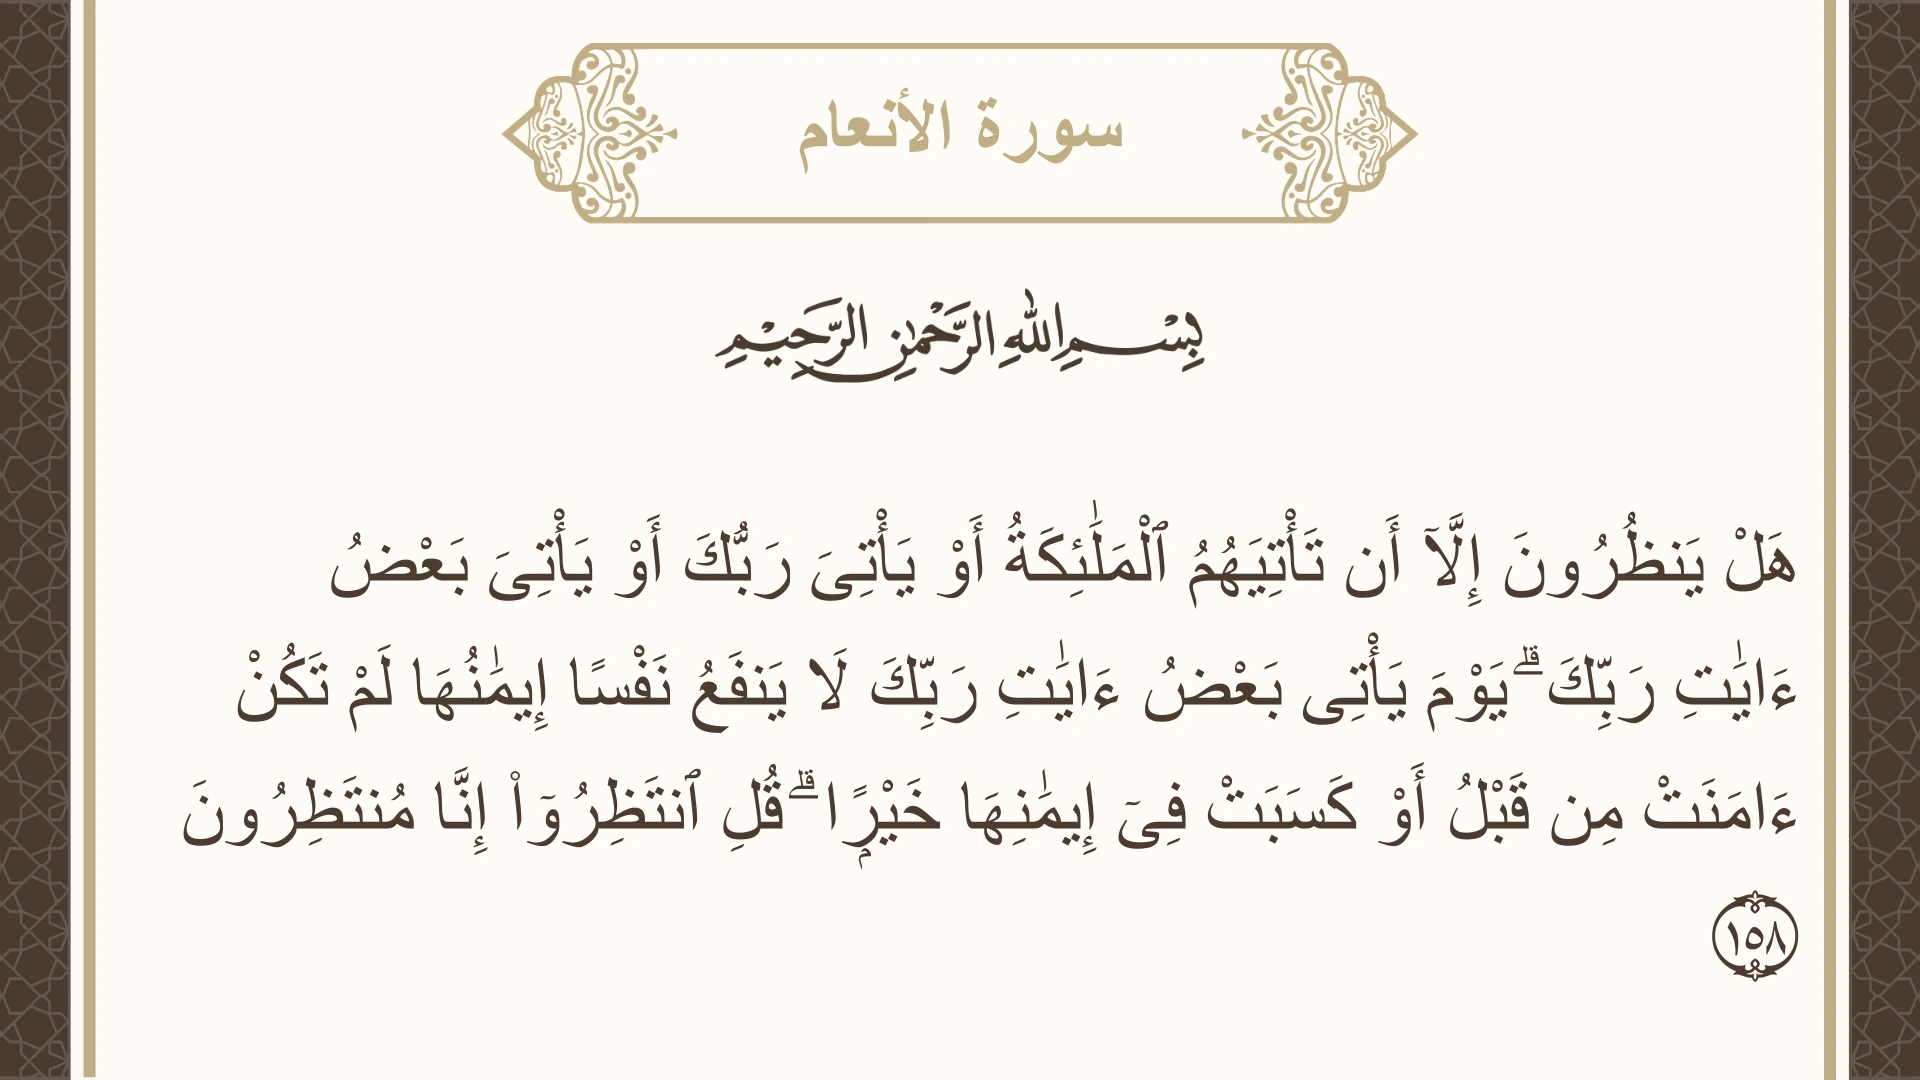 سورة الأنعام
بِسْمِ اللهِ الرَّحْمٰنِ الرَّحِيْمِ
هَلْ يَنظُرُونَ إِلَّآ أَن تَأْتِيَهُمُ ٱلْمَلَٰٓئِكَةُ أَوْ يَأْتِىَ رَبُّكَ أَوْ يَأْتِىَ بَعْضُ
ءَايَٰتِ رَبِّكَ ۗ يَوْمَ يَأْتِى بَعْضُ ءَايَٰتِ رَبِّكَ لَا يَنفَعُ نَفْسًا إِيمَٰنُهَا لَمْ تَكُنْ
ءَامَنَتْ مِن قَبْلُ أَوْ كَسَبَتْ فِىٓ إِيمَٰنِهَا خَيْرًۭا ۗ قُلِ ٱنتَظِرُوٓا۟ إِنَّا مُنتَظِرُونَ
١٥٨